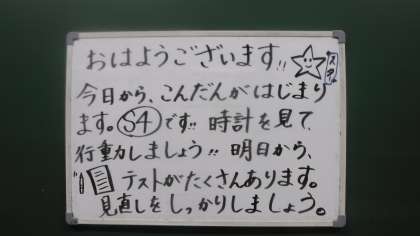 おはようございます!!
スター
今日から、こんだんがはじまり
ます。S4です!! 時計を見て、
行動しましょう!! 明日から、
テストがたくさんあります。
見直しをしっかりしましょう。